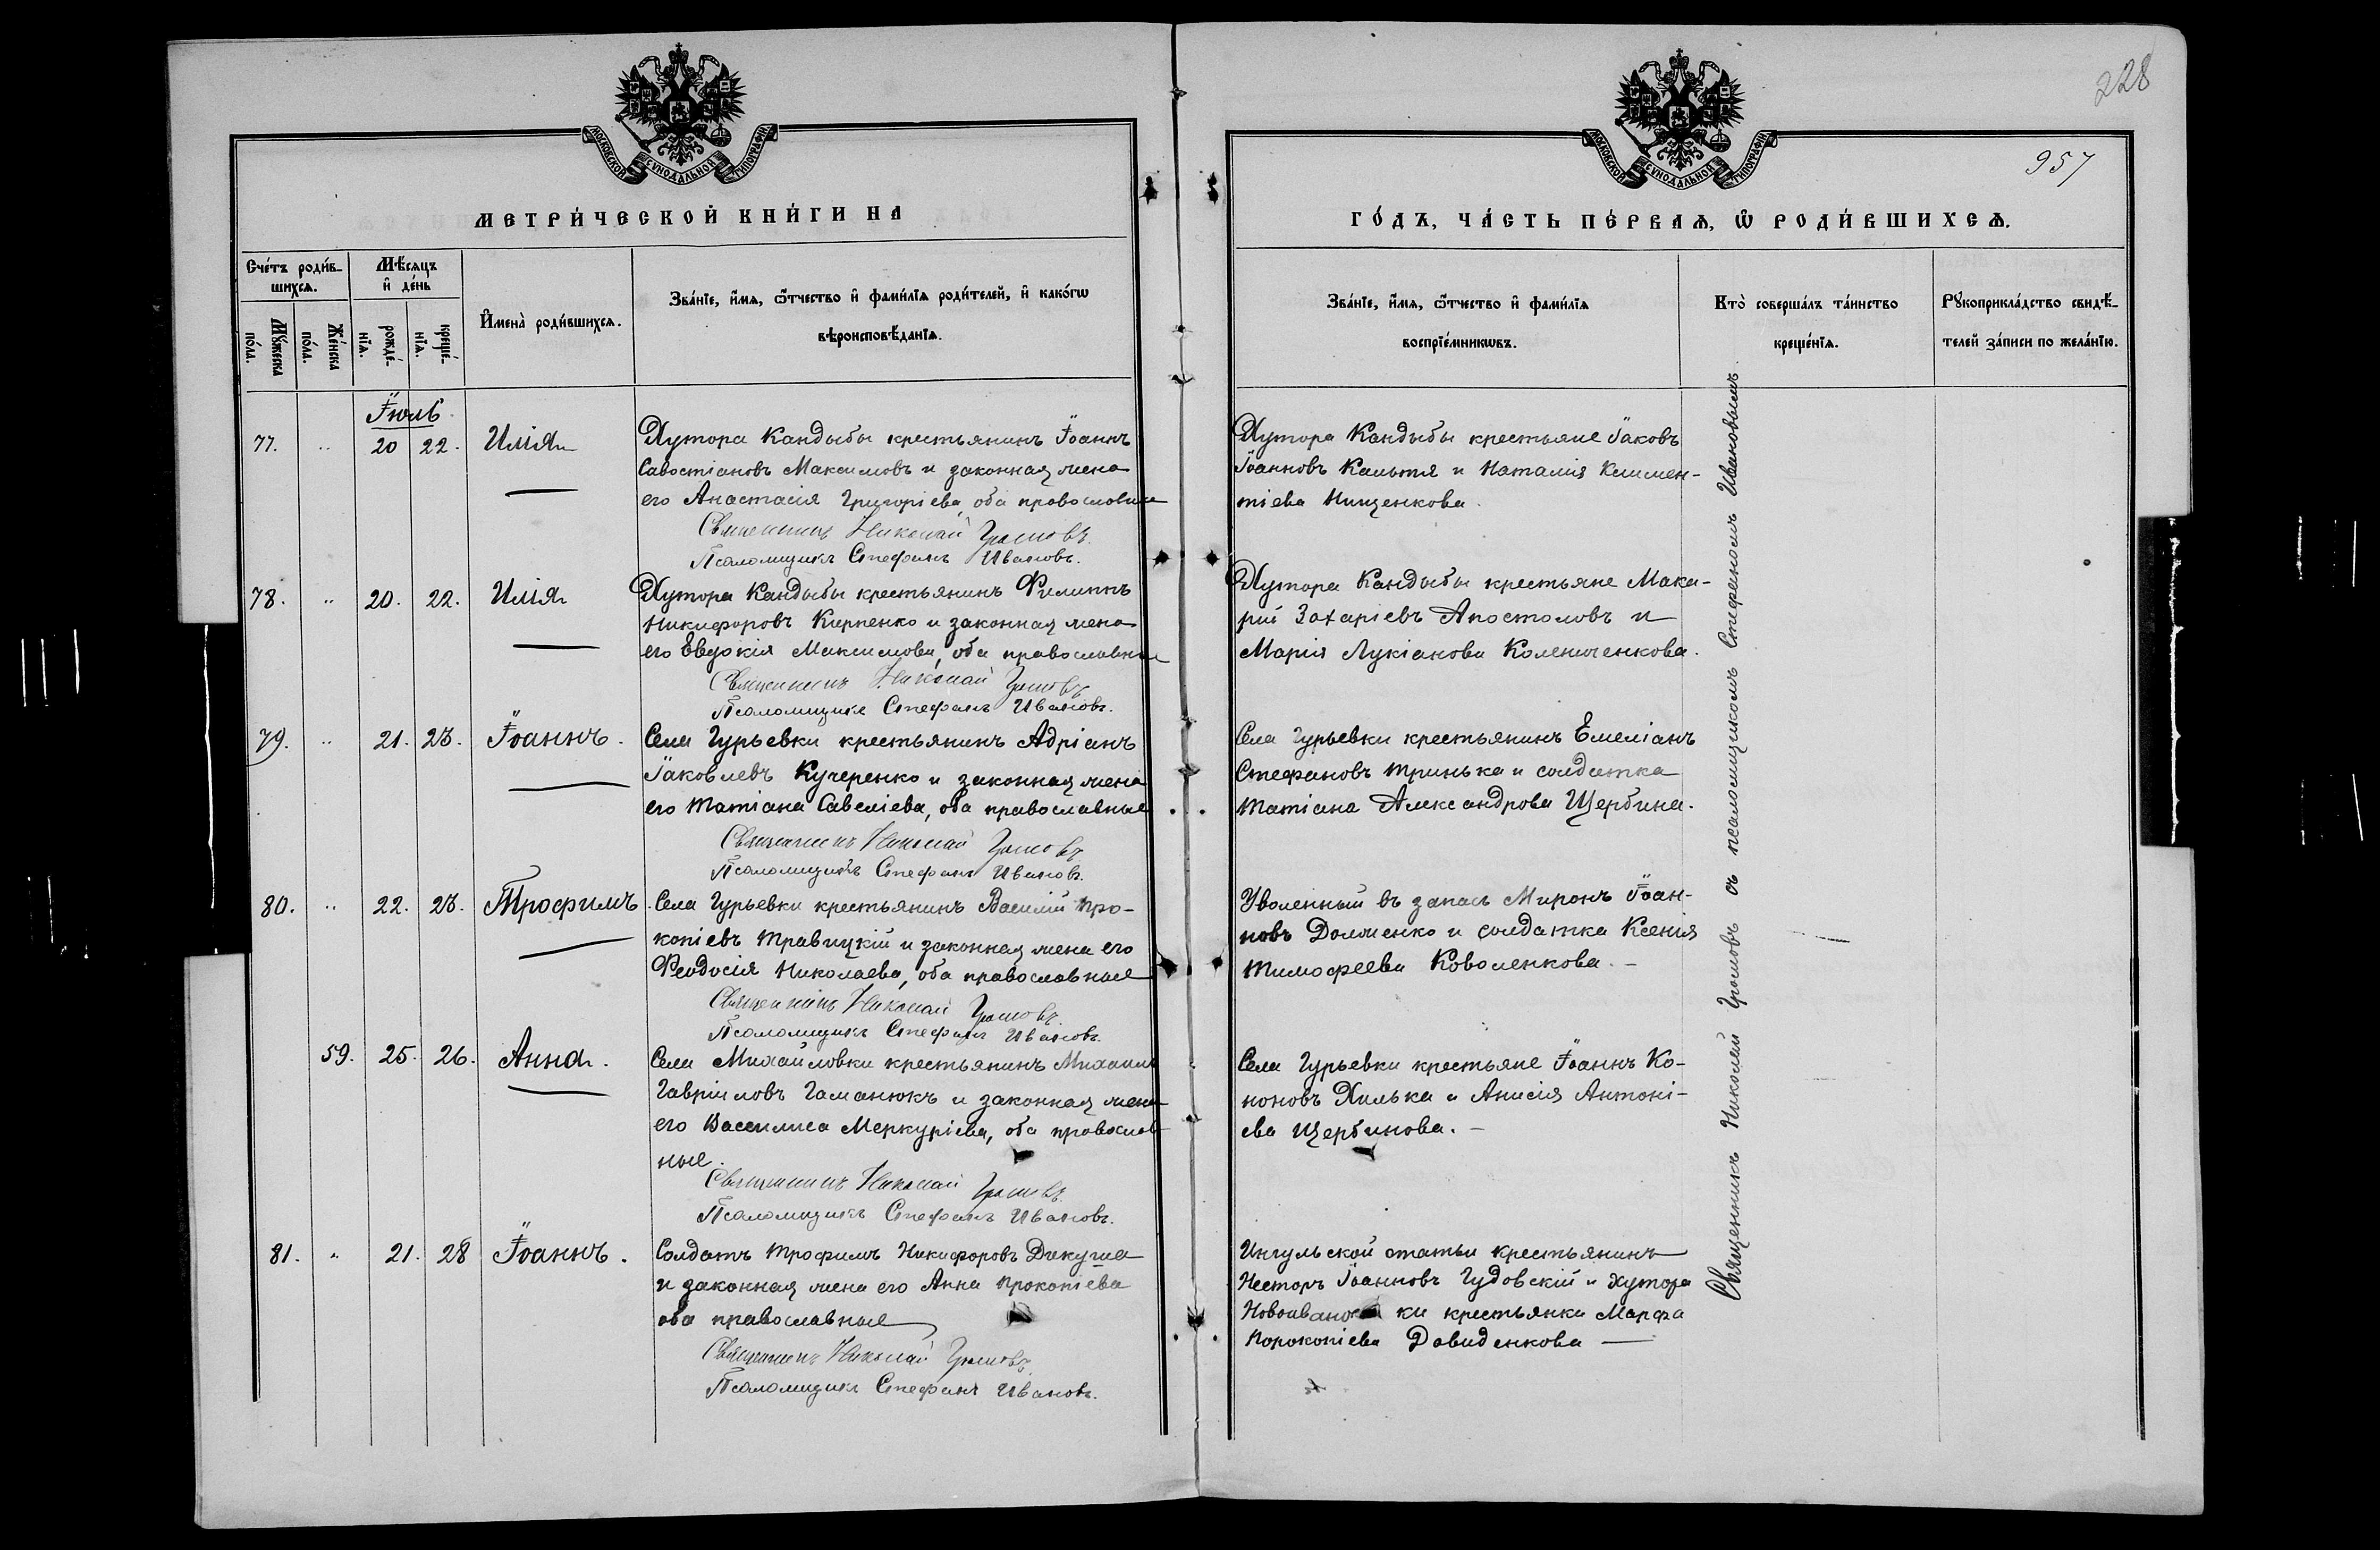 МОСКОВСКОЙ СѴНОДАЛЬНОЙ ТИПОГРАФІИ
МЕТРИ́ЧЕСКОЙ КНИ́ГИ НА
Сче́тъ роди́в-
шихсѧ.
Мѹ́жеска
по́ла.
Же́нска
по́ла.
Мѣ́сяцъ
и҆ де́нь
рожде́-
нїѧ.
креще́-
нїѧ.
И҆мена̀ роди́вшихсѧ.
Зва́нїе, и҆́мѧ, ѻ҆́тчество и҆ фами́лїѧ роди́телей, и҆ како́гѡ
вѣроисповѣ́данїѧ.
Іюль
77. " 20 22. Илія
Хутора Кандыбы крестьянинъ Іоаннъ
Савостіановъ Максимовъ и законная жена
его Анастасія Григоріева, оба православные
Священникъ Николай Громовъ.
Псаломщикъ Стефанъ Ивановъ.
78. " 20. 22. Илія
Хутора Кандыбы крестьянинъ Филиппъ
Никифоровъ Кирпенко и законная жена
его Евдокія Максимова, оба православные
Священникъ Николай Громовъ
Псаломщикъ Стефанъ Ивановъ.
79. " 21. 23. Іоаннъ.
Села Гурьевки крестьянинъ Адріанъ
Іаковлевъ Кучеренко и законная жена
его Татіана Савеліева, оба православные
Священникъ Николай Громовъ
Псаломщикъ Стефанъ Ивановъ.
80. " 22. 23. Трофимъ.
Села Гурьевки крестьянинъ Василій Про-
копіевъ Травицкій и законная жена его
Феодосія Николаева, оба православные
Священникъ Николай Громовъ
Псаломщикъ Стефанъ Ивановъ.
59. 25. 26. Анна.
Села Михайловки крестьянинъ Михаилъ
Гавріиловъ Гаманюкъ и законная жена
его Василиса Меркуріева, оба православ
ные.
Священникъ Николай Громовъ.
Псаломщикъ Стефанъ Ивановъ.
81. " 21. 28 Іоаннъ.
Солдатъ Трофимъ Никифоровъ Дикуша
и законная жена его Анна Прокопіева
оба православные
Священникъ Николай Громовъ.
Псаломщикъ Стефанъ Ивановъ.
228
957
МОСКОВСКОЙ СѴНОДАЛЬНОЙ ТИПОГРАФІИ
ГО́ДЪ, ЧА́СТЬ ПЕ́РВАѦ, Ѽ РОДИ́ВШИХСѦ.
Зва́нїе, и҆́мѧ, ѻ҆́тчество и҆ фами́лїѧ
воспрїе́мникѡвъ.
Кто̀ соверша́лъ та́инство
креще́нїѧ.
Рꙋкоприкла́дство свидѣ́-
телей за́писи по жела́нїю.
Хутора Кандыбы крестьяне Іаковъ
Іоанновъ Кальтя и Наталія Климен-
тіева Нищенкова.
Хутора Кандыбы крестьяне Мака-
рій Захаріевъ Апостоловъ и
Марія Лукіанова Колениченкова.
Села Гурьевки крестьянинъ Емеліанъ
Стефановъ Тринька и солдатка
Татіана Александрова Щербина.
Уволенный въ запасъ Миронъ Іоан-
новъ Долженко и солдатка Ксенія
Тимофеева Коваленкова. –
Села Гурьевки крестьяне Іоаннъ Ко-
ноновъ Хилька и Анисія Антоні-
ева Щербинова. –
Ингульской статьи крестьянинъ
Несторъ Іоанновъ Гудовскій и хутора
ки крестьянки Марфа
Порокопіева Давиденкова —
Священникъ Николай Громовъ съ псаломщикомъ Стефаномъ Ивановымъ